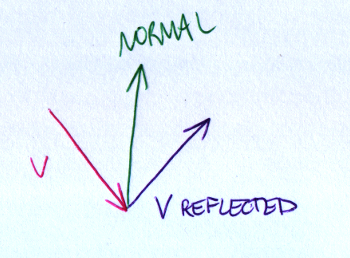 NORMAL
V
V REFLECTED